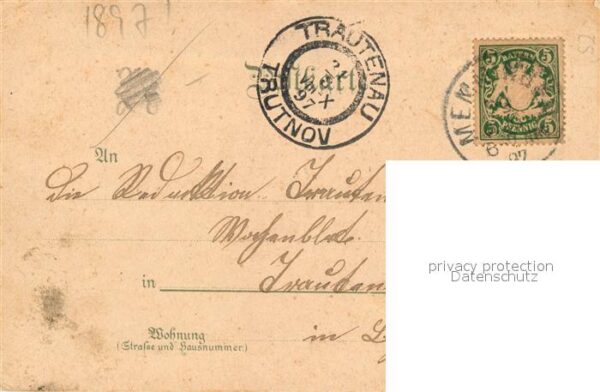 1897
TRAUTENAU
TRUTNOV
97
Postkarte
5 5
PFENNIG
MEM
97
An
Die Redaktion Trauten
Wochenblat
in Trauten
Wohnung
(Straße und Hausnummer.)
in
privacy protection
Datenschutz